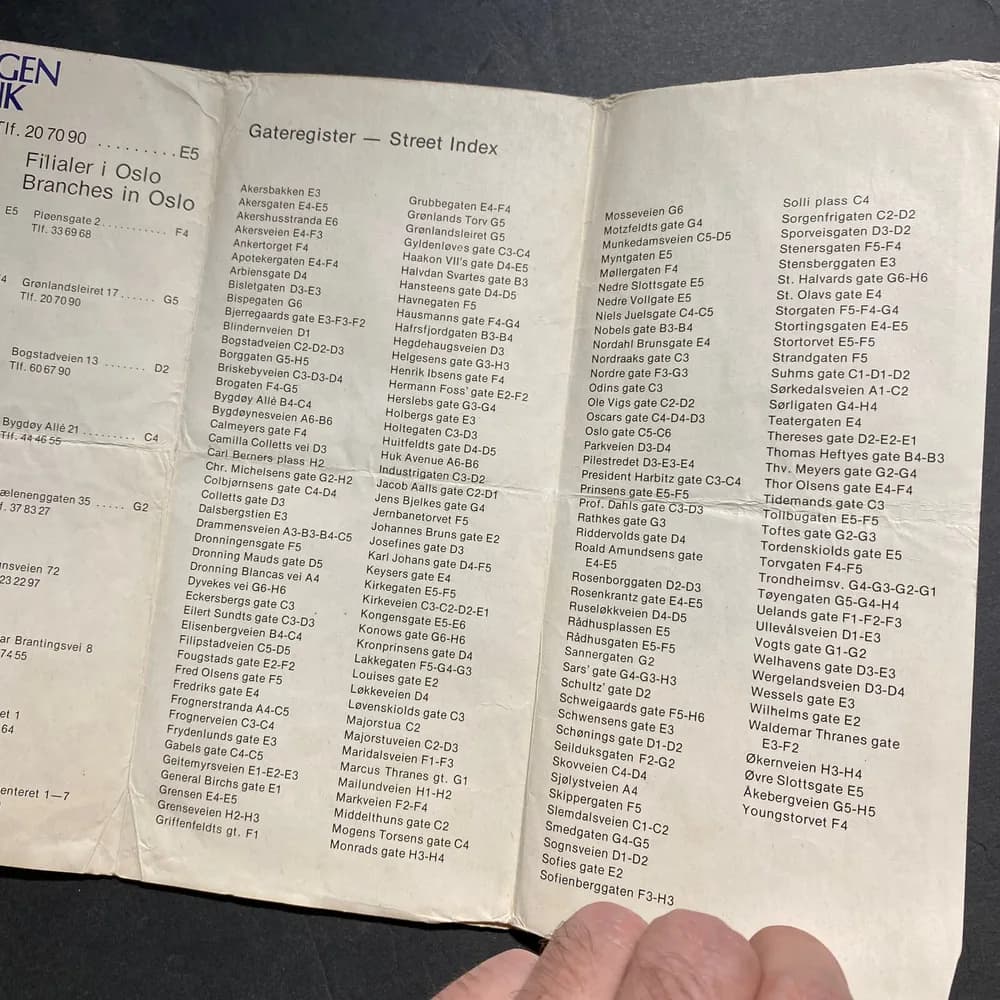 GEN
NK
Tlf. 20 70 90 ......... E5
Filialer i Oslo
Branches in Oslo
E5 Pløensgate 2 ........... F4
Tlf. 33 69 68
Grønlandsleiret 17 ...... G5
Tlf. 20 70 90
Bogstadveien 13 ....... D2
Tlf. 60 67 90
Bygdøy Allé 21 ........ C4
Tlf. 44 46 55
35 ..... G2
37 83 27
72
23 22 97
Brantingsvei 8
74 55
1
64
1—7
Gateregister — Street Index
Akersbakken E3
Akersgaten E4-E5
Akershusstranda E6
Akersveien E4-F3
Ankertorget F4
Apotekergaten E4-F4
Arbiensgate D4
Bisletgaten D3-E3
Bispegaten G6
Bjerregaards gate E3-F3-F2
Blindernveien D1
Bogstadveien C2-D2-D3
Borggaten G5-H5
Briskebyveien C3-D3-D4
Brogaten F4-G5
Bygdøy Allé B4-C4
Bygdøynesveien A6-B6
Calmeyers gate F4
Camilla Colletts vei D3
Carl Berners plass H2
Chr. Michelsens gate G2-H2
Colbjørnsens gate C4-D4
Colletts gate D3
Dalsbergstien E3
Drammensveien A3-B3-B4-C5
Dronningensgate F5
Dronning Mauds gate D5
Dronning Blancas vei A4
Dyvekes vei G6-H6
Eckersbergs gate C3
Eilert Sundts gate C3-D3
Elisenbergveien B4-C4
Filipstadveien C5-D5
Fougstads gate E2-F2
Fred Olsens gate F5
Fredriks gate E4
Frognerstranda A4-C5
Frognerveien C3-C4
Frydenlunds gate E3
Gabels gate C4-C5
Geitemyrsveien E1-E2-E3
General Birchs gate E1
Grensen E4-E5
Grenseveien H2-H3
Griffenfeldts gt. F1
Grubbegaten E4-F4
Grønlands Torv G5
Grønlandsleiret G5
Gyldenløves gate C3-C4
Haakon VII's gate D4-E5
Halvdan Svartes gate B3
Hansteens gate D4-D5
Havnegaten F5
Hausmanns gate F4-G4
Hafrsfjordgaten B3-B4
Hegdehaugsveien D3
Helgesens gate G3-H3
Henrik Ibsens gate F4
Hermann Foss' gate E2-F2
Herslebs gate G3-G4
Holbergs gate E3
Holtegaten C3-D3
Huitfeldts gate D4-D5
Huk Avenue A6-B6
Industrigaten C3-D2
Jacob Aalls gate C2-D1
Jens Bjelkes gate G4
Jernbanetorvet F5
Johannes Bruns gate E2
Josefines gate D3
Karl Johans gate D4-F5
Keysers gate E4
Kirkegaten E5-F5
Kirkeveien C3-C2-D2-E1
Kongensgate E5-E6
Konows gate G6-H6
Kronprinsens gate D4
Lakkegaten F5-G4-G3
Louises gate E2
Løkkeveien D4
Løvenskiolds gate C3
Majorstua C2
Majorstuveien C2-D3
Maridalsveien F1-F3
Marcus Thranes gt. G1
Mailundveien H1-H2
Markveien F2-F4
Middelthuns gate C2
Mogens Torsens gate C4
Monrads gate H3-H4
Mosseveien G6
Motzfeldts gate G4
Munkedamsveien C5-D5
Myntgaten E5
Møllergaten F4
Nedre Slottsgate E5
Nedre Vollgate E5
Niels Juelsgate C4-C5
Nobels gate B3-B4
Nordahl Brunsgate E4
Nordraaks gate C3
Nordre gate F3-G3
Odins gate C3
Ole Vigs gate C2-D2
Oscars gate C4-D4-D3
Oslo gate C5-C6
Parkveien D3-D4
Pilestredet D3-E3-E4
President Harbitz gate C3-C4
Prinsens gate E5-F5
Prof. Dahls gate C3-D3
Rathkes gate G3
Riddervolds gate D4
Roald Amundsens gate
E4-E5
Rosenborggaten D2-D3
Rosenkrantz gate E4-E5
Ruseløkkveien D4-D5
Rådhusplassen E5
Rådhusgaten E5-F5
Sannergaten G2
Sars' gate G4-G3-H3
Schultz' gate D2
Schweigaards gate F5-H6
Schwensens gate E3
Schønings gate D1-D2
Seilduksgaten F2-G2
Skovveien C4-D4
Sjølystveien A4
Skippergaten F5
Slemdalsveien C1-C2
Smedgaten G4-G5
Sognsveien D1-D2
Sofies gate E2
Sofienberggaten F3-H3
Solli plass C4
Sorgenfrigaten C2-D2
Sporveisgaten D3-D2
Stenersgaten F5-F4
Stensberggaten E3
St. Halvards gate G6-H6
St. Olavs gate E4
Storgaten F5-F4-G4
Stortingsgaten E4-E5
Stortorvet E5-F5
Strandgaten F5
Suhms gate C1-D1-D2
Sørkedalsveien A1-C2
Sørligaten G4-H4
Teatergaten E4
Thereses gate D2-E2-E1
Thomas Heftyes gate B4-B3
Thv. Meyers gate G2-G4
Thor Olsens gate E4-F4
Tidemands gate C3
Tollbugaten E5-F5
Toftes gate G2-G3
Tordenskiolds gate E5
Torvgaten F4-F5
Trondheimsv. G4-G3-G2-G1
Tøyengaten G5-G4-H4
Uelands gate F1-F2-F3
Ullevålsveien D1-E3
Vogts gate G1-G2
Welhavens gate D3-E3
Wergelandsveien D3-D4
Wessels gate E3
Wilhelms gate E2
Waldemar Thranes gate
E3-F2
Økernveien H3-H4
Øvre Slottsgate E5
Åkebergveien G5-H5
Youngstorvet F4